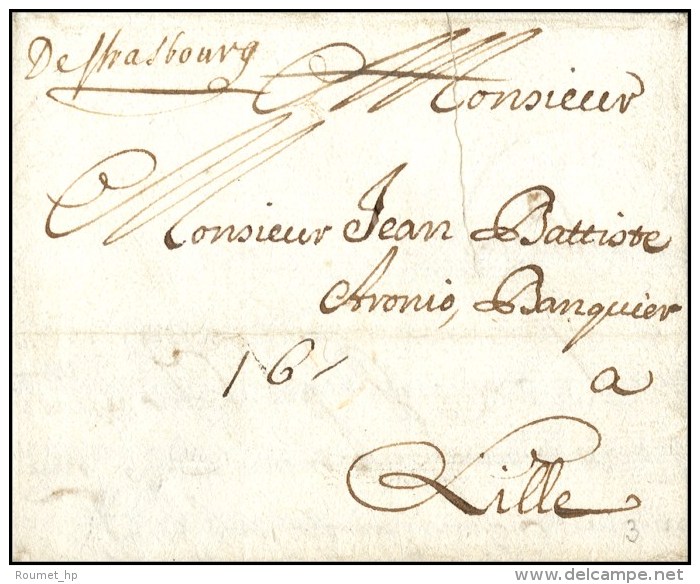 De strasbourg
Monsieur
Monsieur Jean Battiste
Aronio, Banquier
16
a
Lille
3
Roumet_hp
delcampe.net